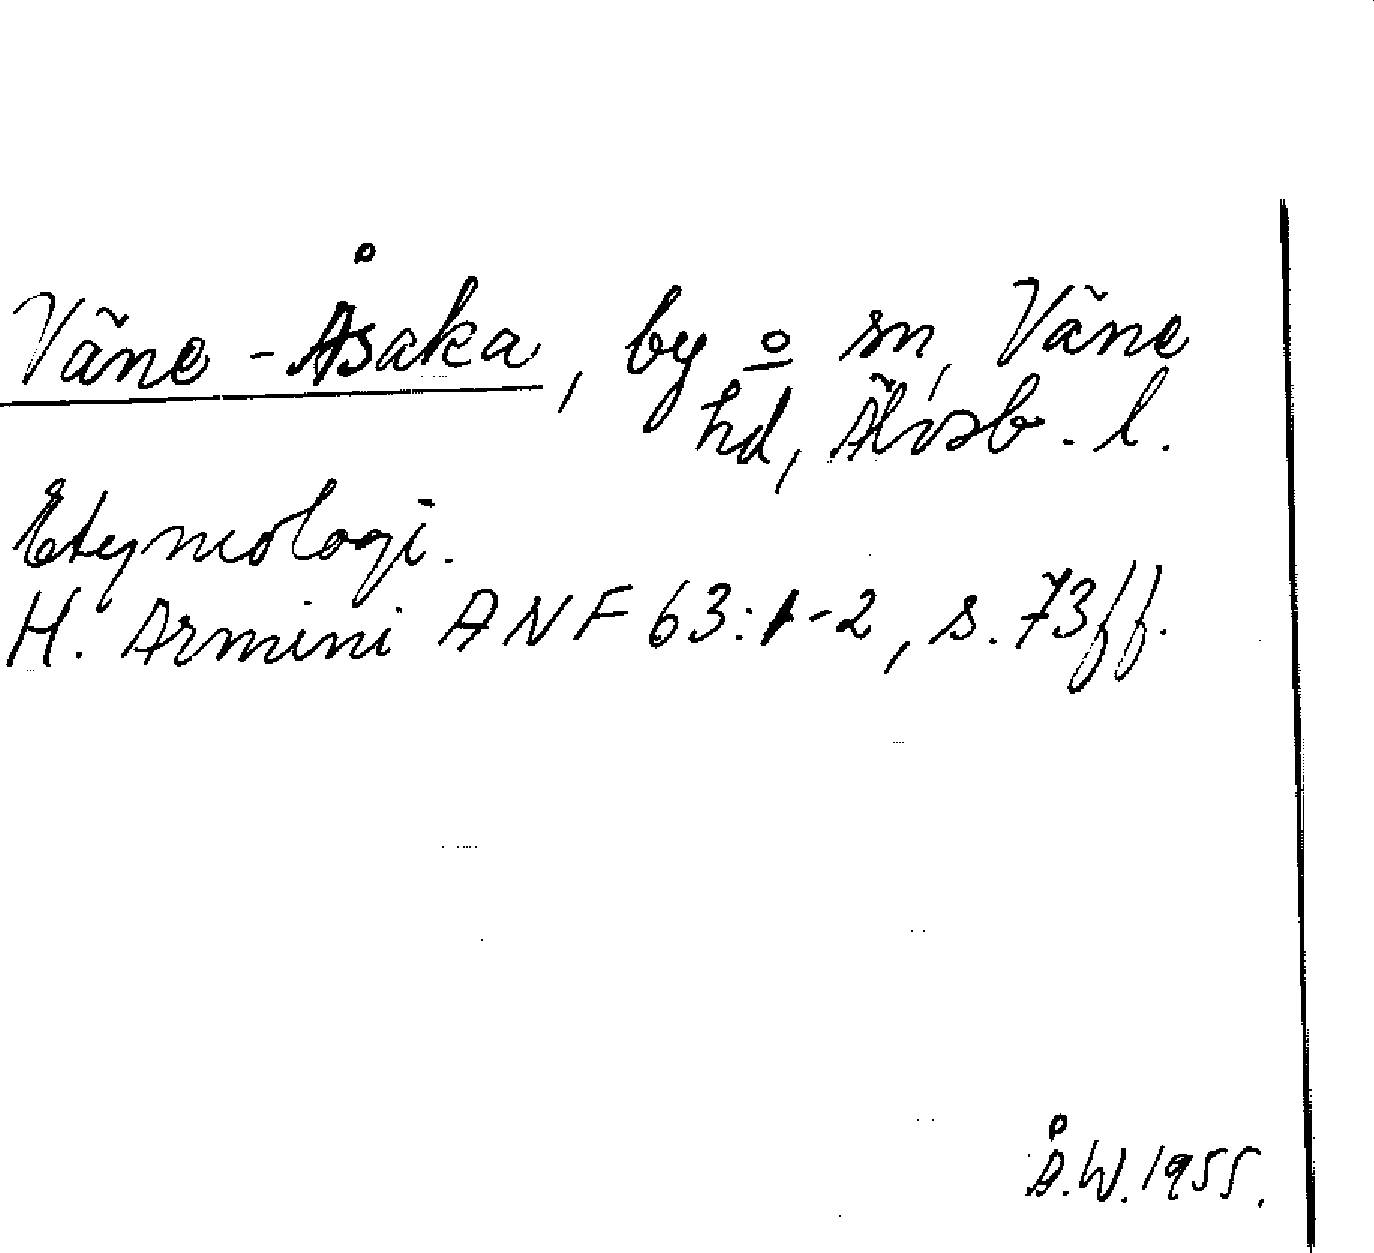 Väne-Åsaka, by o sn, Väne
hd, Älvsb. l.
Etymologi.
H. Armini ANF 63:1-2, s. 73ff.
Å.W. 1955.